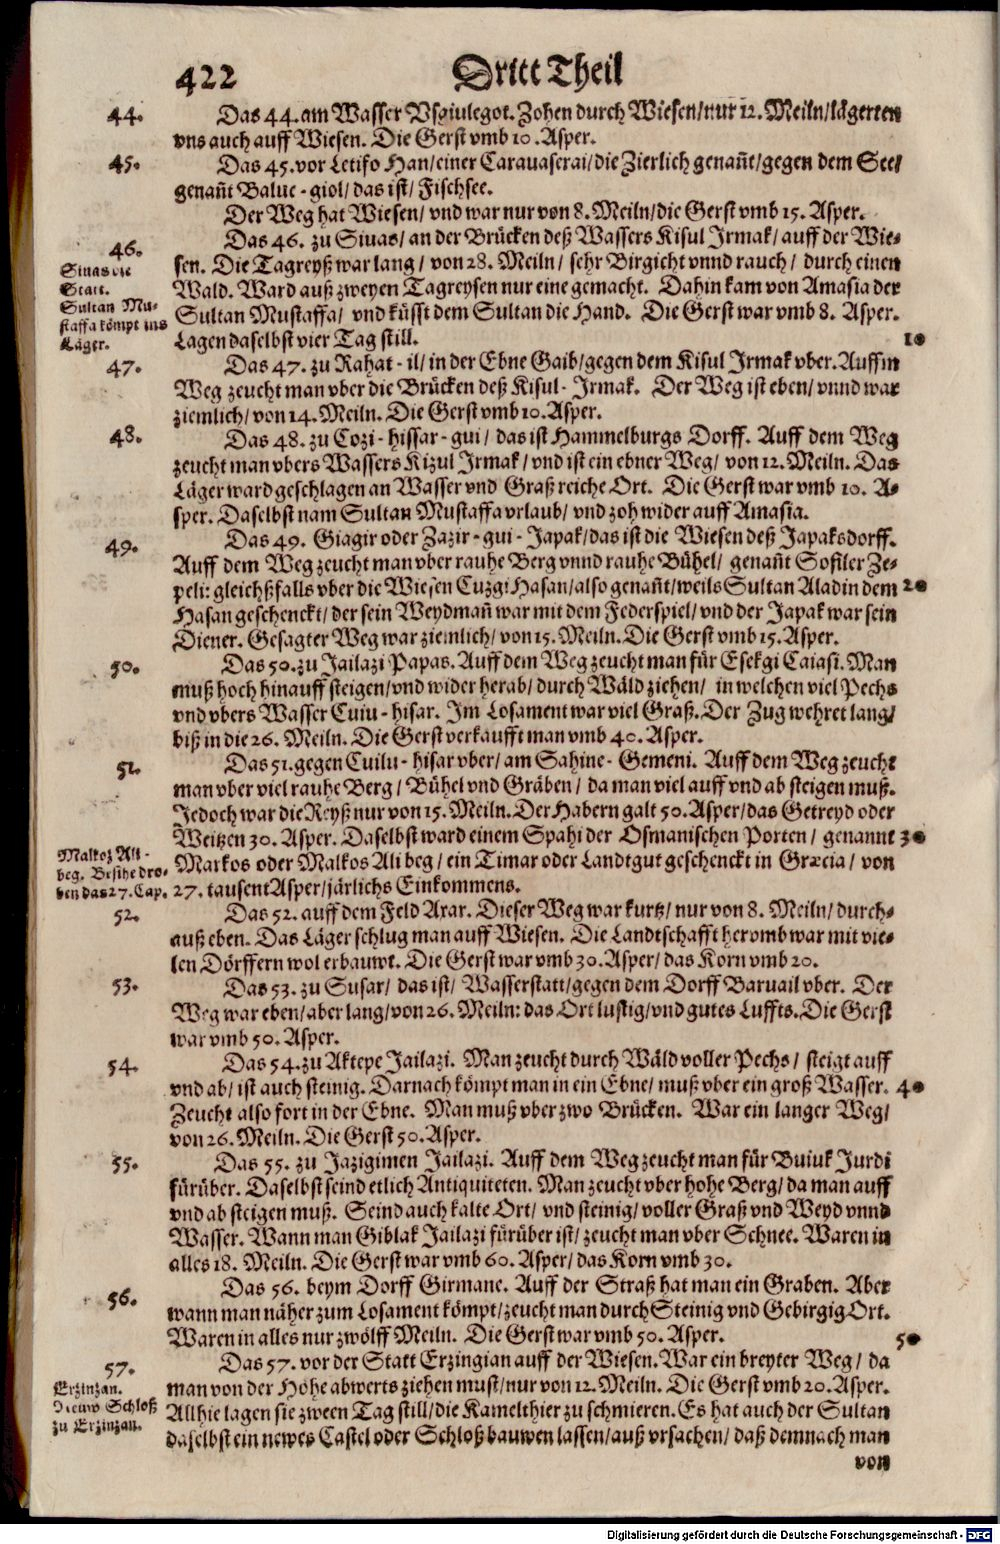 422 Dritt Theil
44. Das 44. am Waſſer Vſgiulegot. Zohen durch Wieſen/nur 12. Meiln/lägerten
vns auch auff Wieſen. Die Gerſt vmb 10. Aſper.
45. Das 45. vor Letifo Han/einer Carauaſerai/die Zierlich genañt/gegen dem See/
genañt Baluc-giol/ das iſt/ Fiſchſee.
Der Weg hat Wieſen/ vnd war nur von 8. Meiln/die Gerſt vmb 15. Aſper.
46. Das 46. zu Siuas/ an der Brücken deß Waſſers Kiſul Irmak/ auff der Wie-
Siuas die
Statt.
Sultan Mu-
ſtaffa kömpt ins
Läger.
ſen. Die Tagreyß war lang/ von 28. Meiln/ ſehr Birgicht vnnd rauch/ durch einen
Wald. Ward auß zweyen Tagreyſen nur eine gemacht. Dahin kam von Amaſia der
Sultan Muſtaffa/ vnd küſſt dem Sultan die Hand. Die Gerſt war vmb 8. Aſper.
Lagen daſelbſt vier Tag ſtill. 10
47. Das 47. zu Rahat-il/ in der Ebne Gaib/gegen dem Kiſul Irmak vber. Auffm
Weg zeucht man vber die Brücken deß Kiſul-Irmak. Der Weg iſt eben/ vnnd war
ziemlich/ von 14. Meiln. Die Gerſt vmb 10. Aſper.
48. Das 48. zu Cozi-hiſſar-gui/ das iſt Hammelburgs Dorff. Auff dem Weg
zeucht man vbers Waſſers Kizul Irmak/ vnd iſt ein ebner Weg/ von 12. Meiln. Das
Läger ward geſchlagen an Waſſer vnd Graß reiche Ort. Die Gerſt war vmb 10. A-
ſper. Daſelbſt nam Sultan Muſtaffa vrlaub/ vnd zoh wider auff Amaſia.
49. Das 49. Giagir oder Zazir-gui-Japak/das iſt die Wieſen deß Japaksdorff.
Auff dem Weg zeucht man vber rauhe Berg vnnd rauhe Bühel/ genañt Sofiler Ze-
peli: gleichßfalls vber die Wieſen Cuzgi Haſan/alſo genañt/weils Sultan Aladin dem 20
Haſan geſchenckt/ der ſein Weydmañ war mit dem Federſpiel/ vnd der Japak war ſein
Diener. Geſagter Weg war ziemlich/ von 15. Meiln. Die Gerſt vmb 15. Aſper.
50. Das 50. zu Jailazi Papas. Auff dem Weg zeucht man für Eſekgi Caiaſi. Man
muß hoch hinauff ſteigen/vnd wider herab/ durch Wäld ziehen/ in welchen viel Pechs
vnd vbers Waſſer Cuiu-hiſar. Im Loſament war viel Graß. Der Zug wehret lang/
biß in die 26. Meiln. Die Gerſt verkaufft man vmb 40. Aſper.
51. Das 51. gegen Cuilu-hiſar vber/ am Sahine-Gemeni. Auff dem Weg zeucht
man vber viel rauhe Berg/ Bühel vnd Gräben/ da man viel auff vnd ab ſteigen muß.
Jedoch war die Reyß nur von 15. Meiln. Der Habern galt 50. Aſper/das Getreyd oder
Weitzen 30. Aſper. Daſelbſt ward einem Spahi der Oſmaniſchen Porten/ genannt 30
Malkoz Ali-
beg. Beſihe dro-
ben das 27. Cap.
Markos oder Malkos Ali beg/ ein Timar oder Landtgut geſchenckt in Græcia/ von
27. tauſent Aſper/järlichs Einkommens.
52. Das 52. auff dem Feld Axar. Dieſer Weg war kurtz/ nur von 8. Meiln/ durch-
auß eben. Das Läger ſchlug man auff Wieſen. Die Landtſchafft heromb war mit vie-
len Dörffern wol erbauwt. Die Gerſt war vmb 30. Aſper/ das Korn vmb 20.
53. Das 53. zu Suſar/ das iſt/ Waſſerſtatt/gegen dem Dorff Baruail vber. Der
Weg war eben/aber lang/von 26. Meiln: das Ort luſtig/vnd gutes Luffts. Die Gerſt
war vmb 50. Aſper.
54. Das 54. zu Aktepe Jailazi. Man zeucht durch Wäld voller Pechs/ ſteigt auff
vnd ab/ iſt auch ſteinig. Darnach kömpt man in ein Ebne/ muß vber ein groß Waſſer. 40
Zeucht alſo fort in der Ebne. Man muß vber zwo Brücken. War ein langer Weg/
von 26. Meiln. Die Gerſt 50. Aſper.
55. Das 55. zu Jazigimen Jailazi. Auff dem Weg zeucht man für Buiuk Jurdi
fürüber. Daſelbſt ſeind etlich Antiquiteten. Man zeucht vber hohe Berg/ da man auff
vnd ab ſteigen muß. Seind auch kalte Ort/ vnd ſteinig/ voller Graß vnd Weyd vnnd
Waſſer. Wann man Giblak Jailazi fürüber iſt/ zeucht man vber Schnee. Waren in
alles 18. Meiln. Die Gerſt war vmb 60. Aſper/ das Korn vmb 30.
56. Das 56. beym Dorff Girmane. Auff der Straß hat man ein Graben. Aber
wann man näher zum Loſament kömpt/ zeucht man durch Steinig vnd Gebirgig Ort.
Waren in alles nur zwölff Meiln. Die Gerſt war vmb 50. Aſper. 50
57. Das 57. vor der Statt Erzingian auff der Wieſen. War ein breyter Weg/ da
Erzinzan.
Neuw Schloß
zu Erzinzan.
man von der Höhe abwerts ziehen muſt/nur von 12. Meiln. Die Gerſt vmb 20. Aſper.
Allhie lagen ſie zween Tag ſtill/die Kamelthier zu ſchmieren. Es hat auch der Sultan
daſelbſt ein newes Caſtel oder Schloß bauwen laſſen/auß vrſachen/ daß demnach man
von
Digitalisierung gefördert durch die Deutsche Forschungsgemeinschaft - DFG